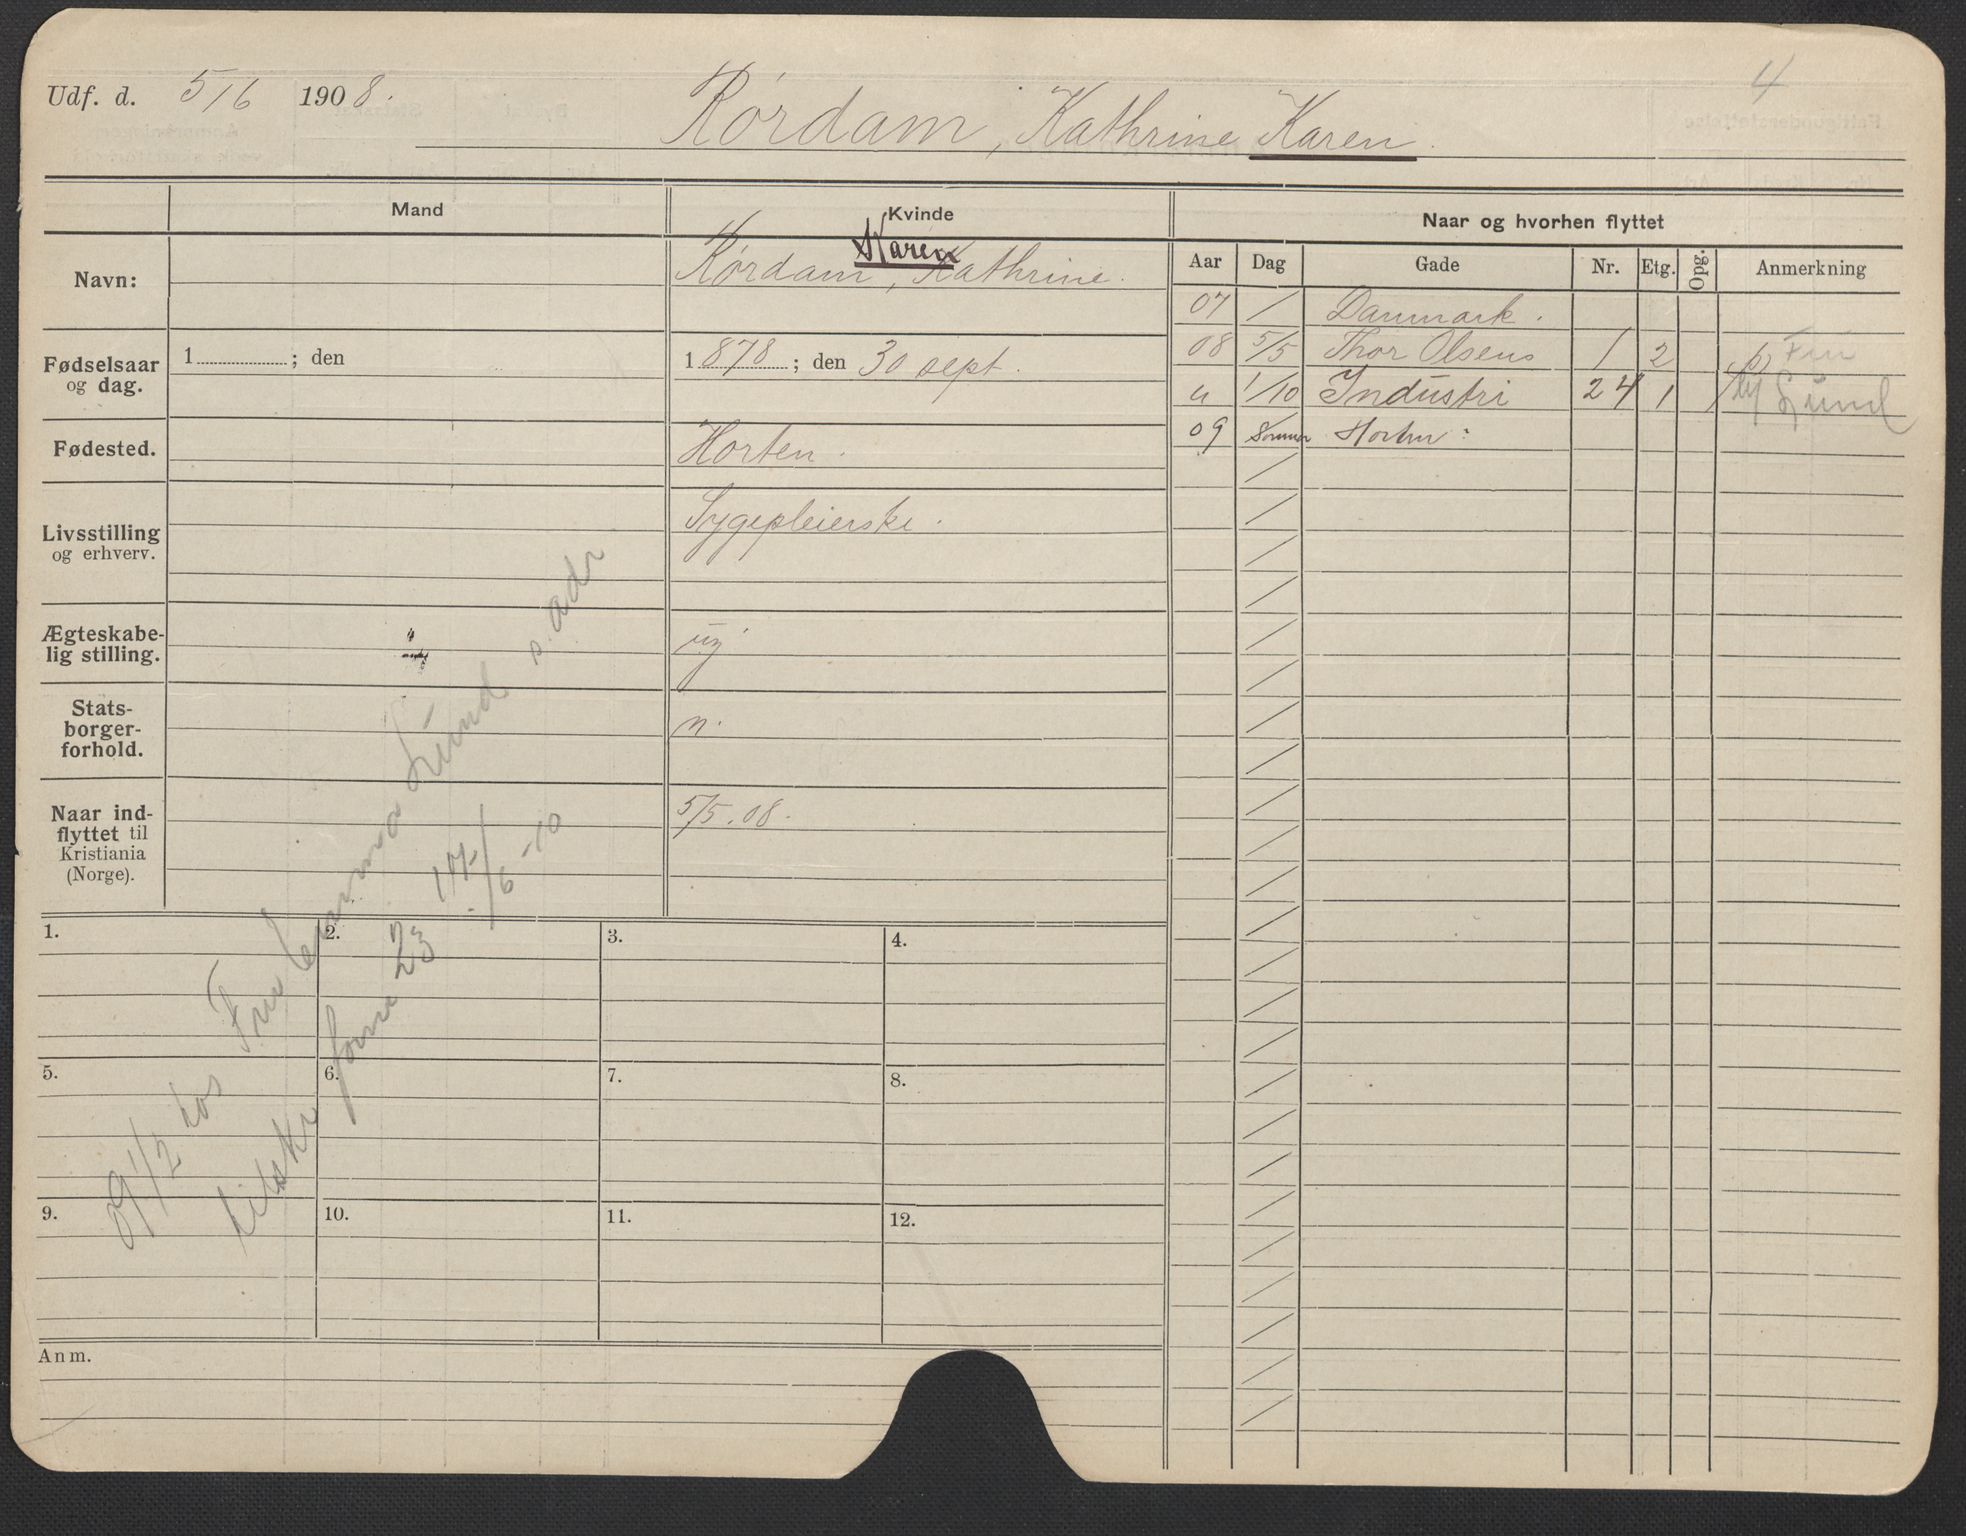 Udf. d. 5/6 1908.
4
Rørdam, Kathrine Karen.
Mand
Kvinde
Naar og hvorhen flyttet
Navn:
Karen
Rørdam, Kathrine.
Aar Dag Gade Nr. Etg. Opg. Anmerkning
07 / Danmark.
08 5/5 Thor Olsens 1 2 Fru
" 1/10 Industri 24 1 Lund
09 Sommer Horten
Fødselsaar og dag.
1 ; den
1878 ; den 30 sept.
Fødested.
Horten.
Livsstilling og erhverv.
Sygepleierske.
Ægteskabe-
lig stilling.
ug
Stats-
borger-
forhold.
n.
Naar ind-
flyttet til
Kristiania
(Norge).
5/5.08.
09 1/2 hos Fru Emma Lund s. adr
17/6-10
1. 2. 3. 4.
5. 6. 7. 8.
9. 10. 11. 12.
Anm.